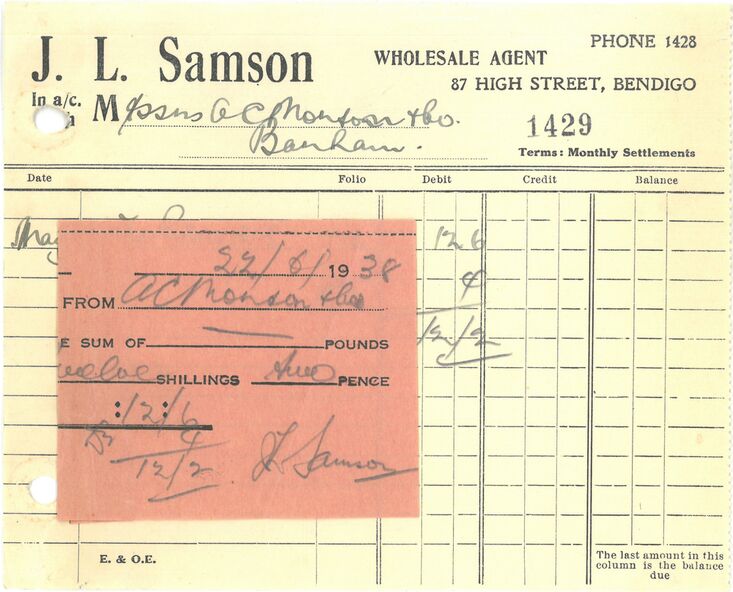 J. L. Samson
WHOLESALE AGENT
PHONE 1428
87 HIGH STREET, BENDIGO
In a/c.
M essrs A C Monson & Co.
1429
Terms: Monthly Settlements
Date Folio Debit Credit Balance
May
12 6
4
12/2
22/6/ 19 38
FROM A C Monson & Co
E SUM OF — POUNDS
welve SHILLINGS two PENCE
: 12 : 6
4
12/2
J L Samson
E. & O.E.
The last amount in this
column is the balance
due